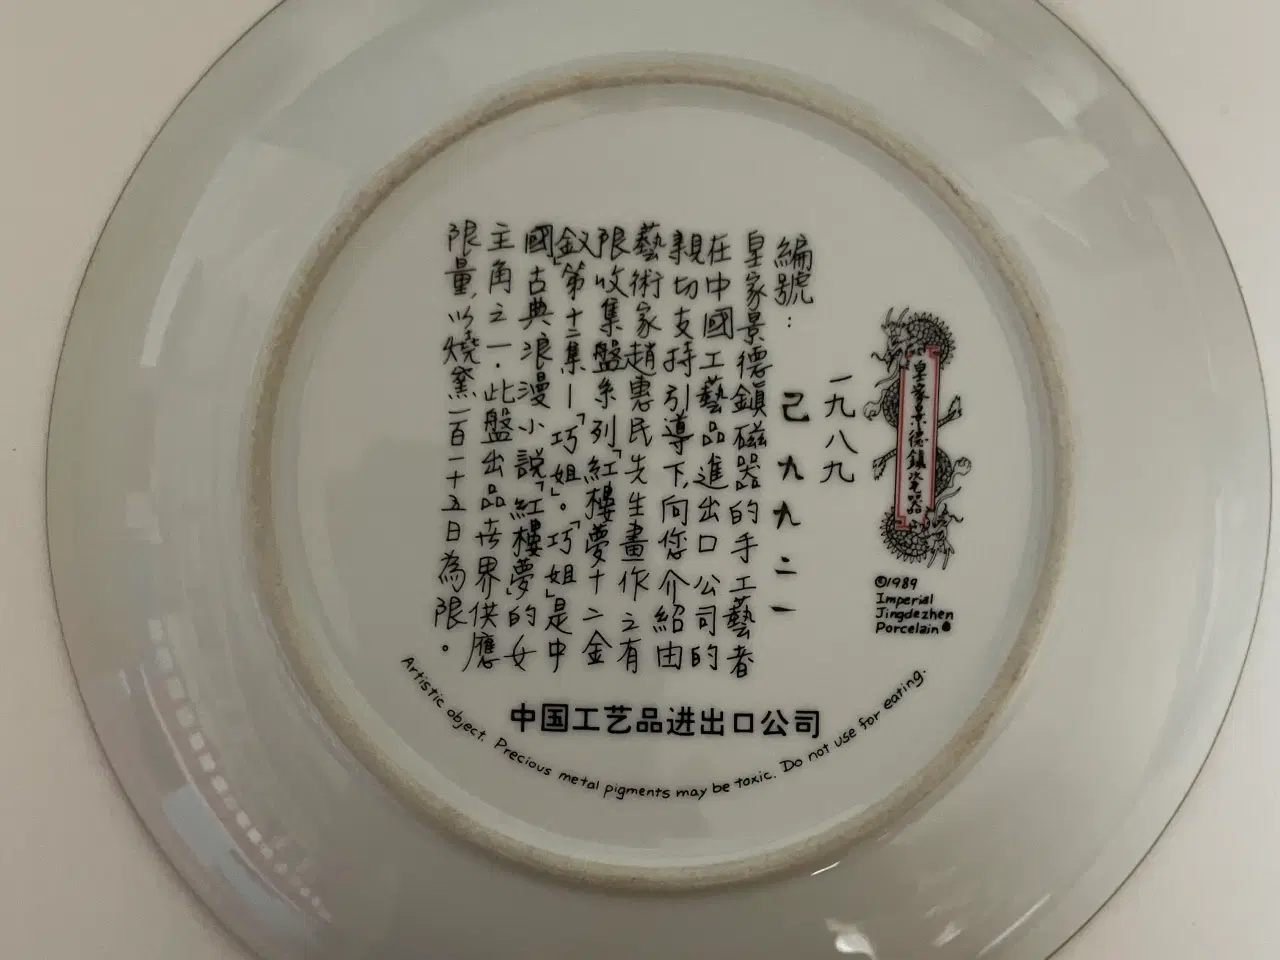 皇家景德鎮瓷器
©1989
Imperial
Jingdezhen
Porcelain
一九八九
編號：己九九二一
皇家景德鎮磁器的手工藝者
在中國工藝品進出口公司的
親切支持引導下,向您介紹由
藝術家趙惠民先生畫作之有
限收集盤系列「紅樓夢十二金
釵」第十二集—「巧姐」。「巧姐」是中
國古典浪漫小說「紅樓夢」的女
主角之一.此盤出品世界供應
限量,以燒窯一百一十五日為限。
中国工艺品进出口公司
Artistic object. Precious metal pigments may be toxic. Do not use for eating.